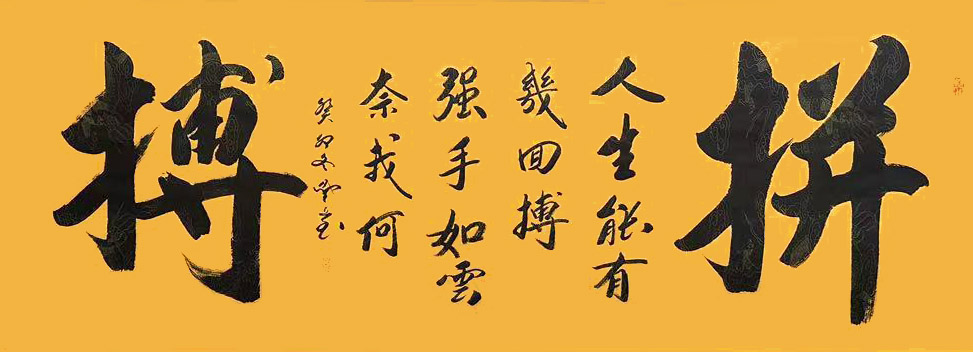 拼
人生能有
幾回搏
强手如雲
奈我何
搏
癸卯冬